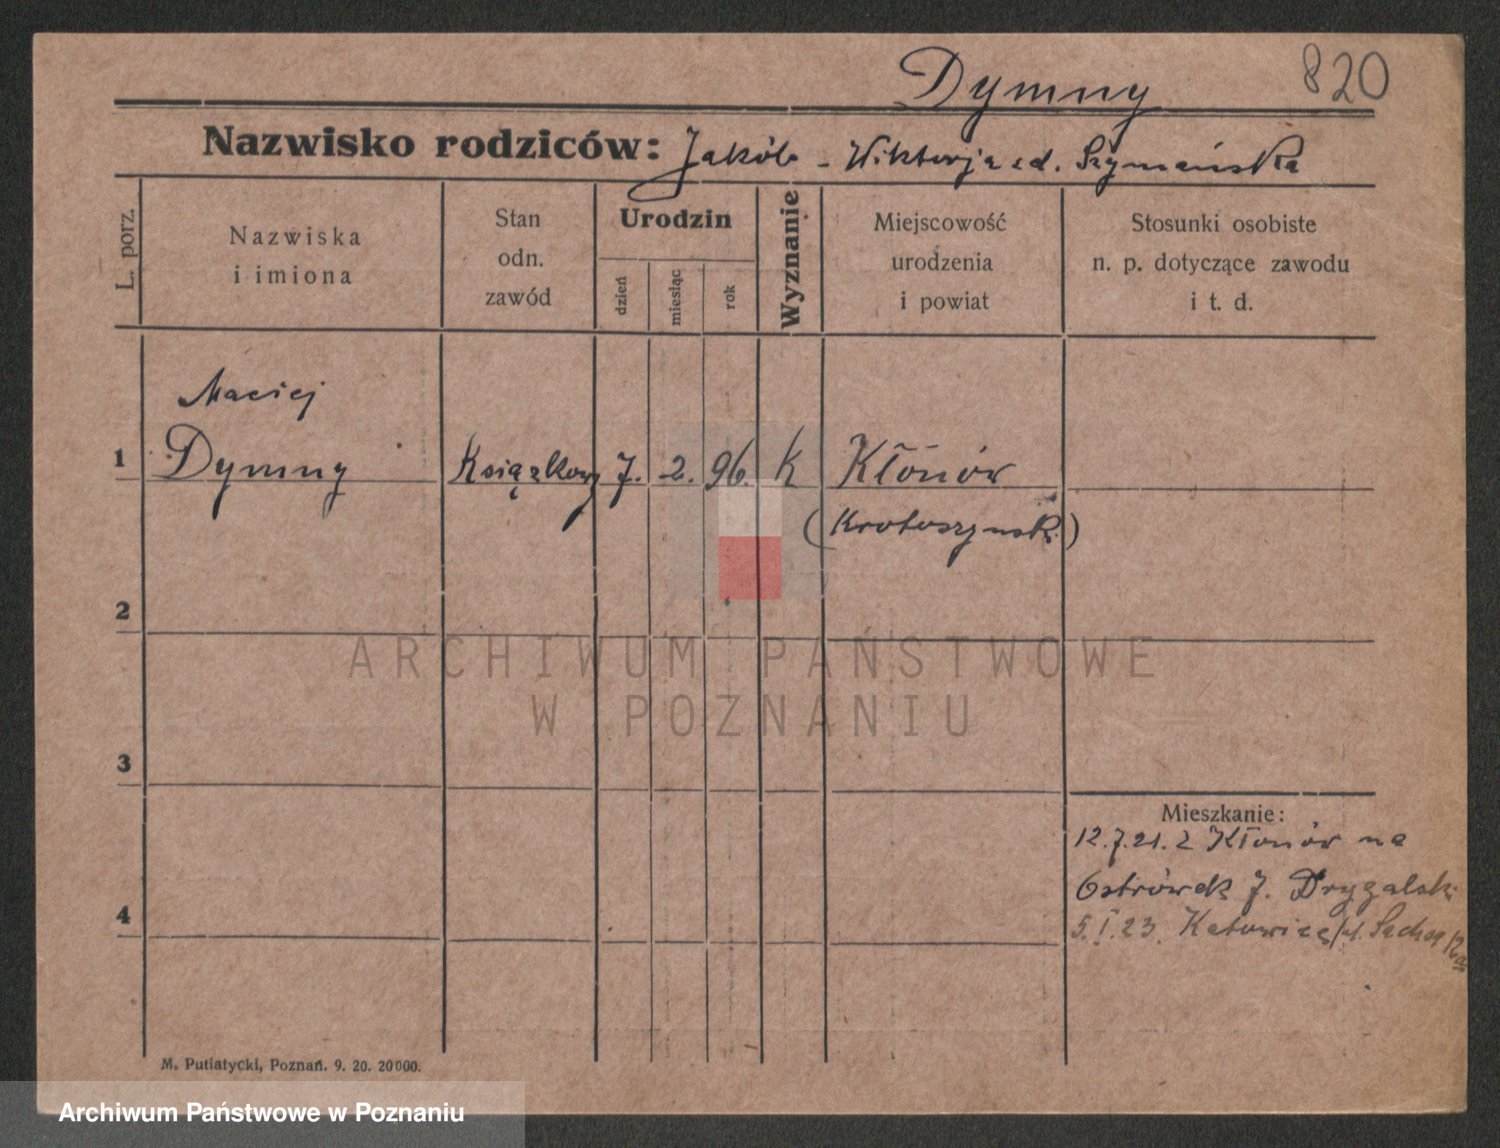 Dymny 820
Nazwisko rodziców: Jakób - Wiktorja zd. Szymańska
L. porz.
Nazwiska
i imiona
Stan
odn.
zawód
Urodzin
dzień
miesiąc
rok
Wyznanie
Miejscowość
urodzenia
i powiat
Stosunki osobiste
n. p. dotyczące zawodu
i t. d.
Maciej
1 Dymny Książkowy 7. 2. 96. K Kłonów
(Krotoszynsk.)
2
3
4
Mieszkanie:
12.7.21. z Kłonów na
Ostrówek 7. Drygalski
5.I.23. Katowice
M. Putiatycki, Poznań. 9. 20. 20000.
ARCHIWUM PAŃSTWOWE
W POZNANIU
Archiwum Państwowe w Poznaniu